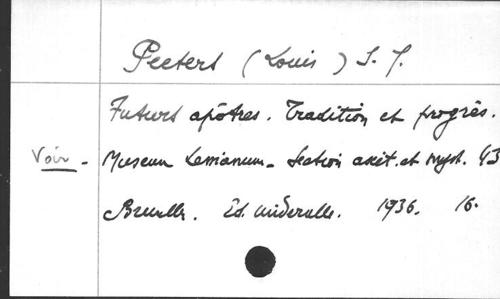 Peeters (Louis) S.J.
Futurs apôtres. Tradition et progrès.
Voir - Museum Lessianum - Section ascét. et myst. 43
Bruxelles. Ed. universelle. 1936. 16.